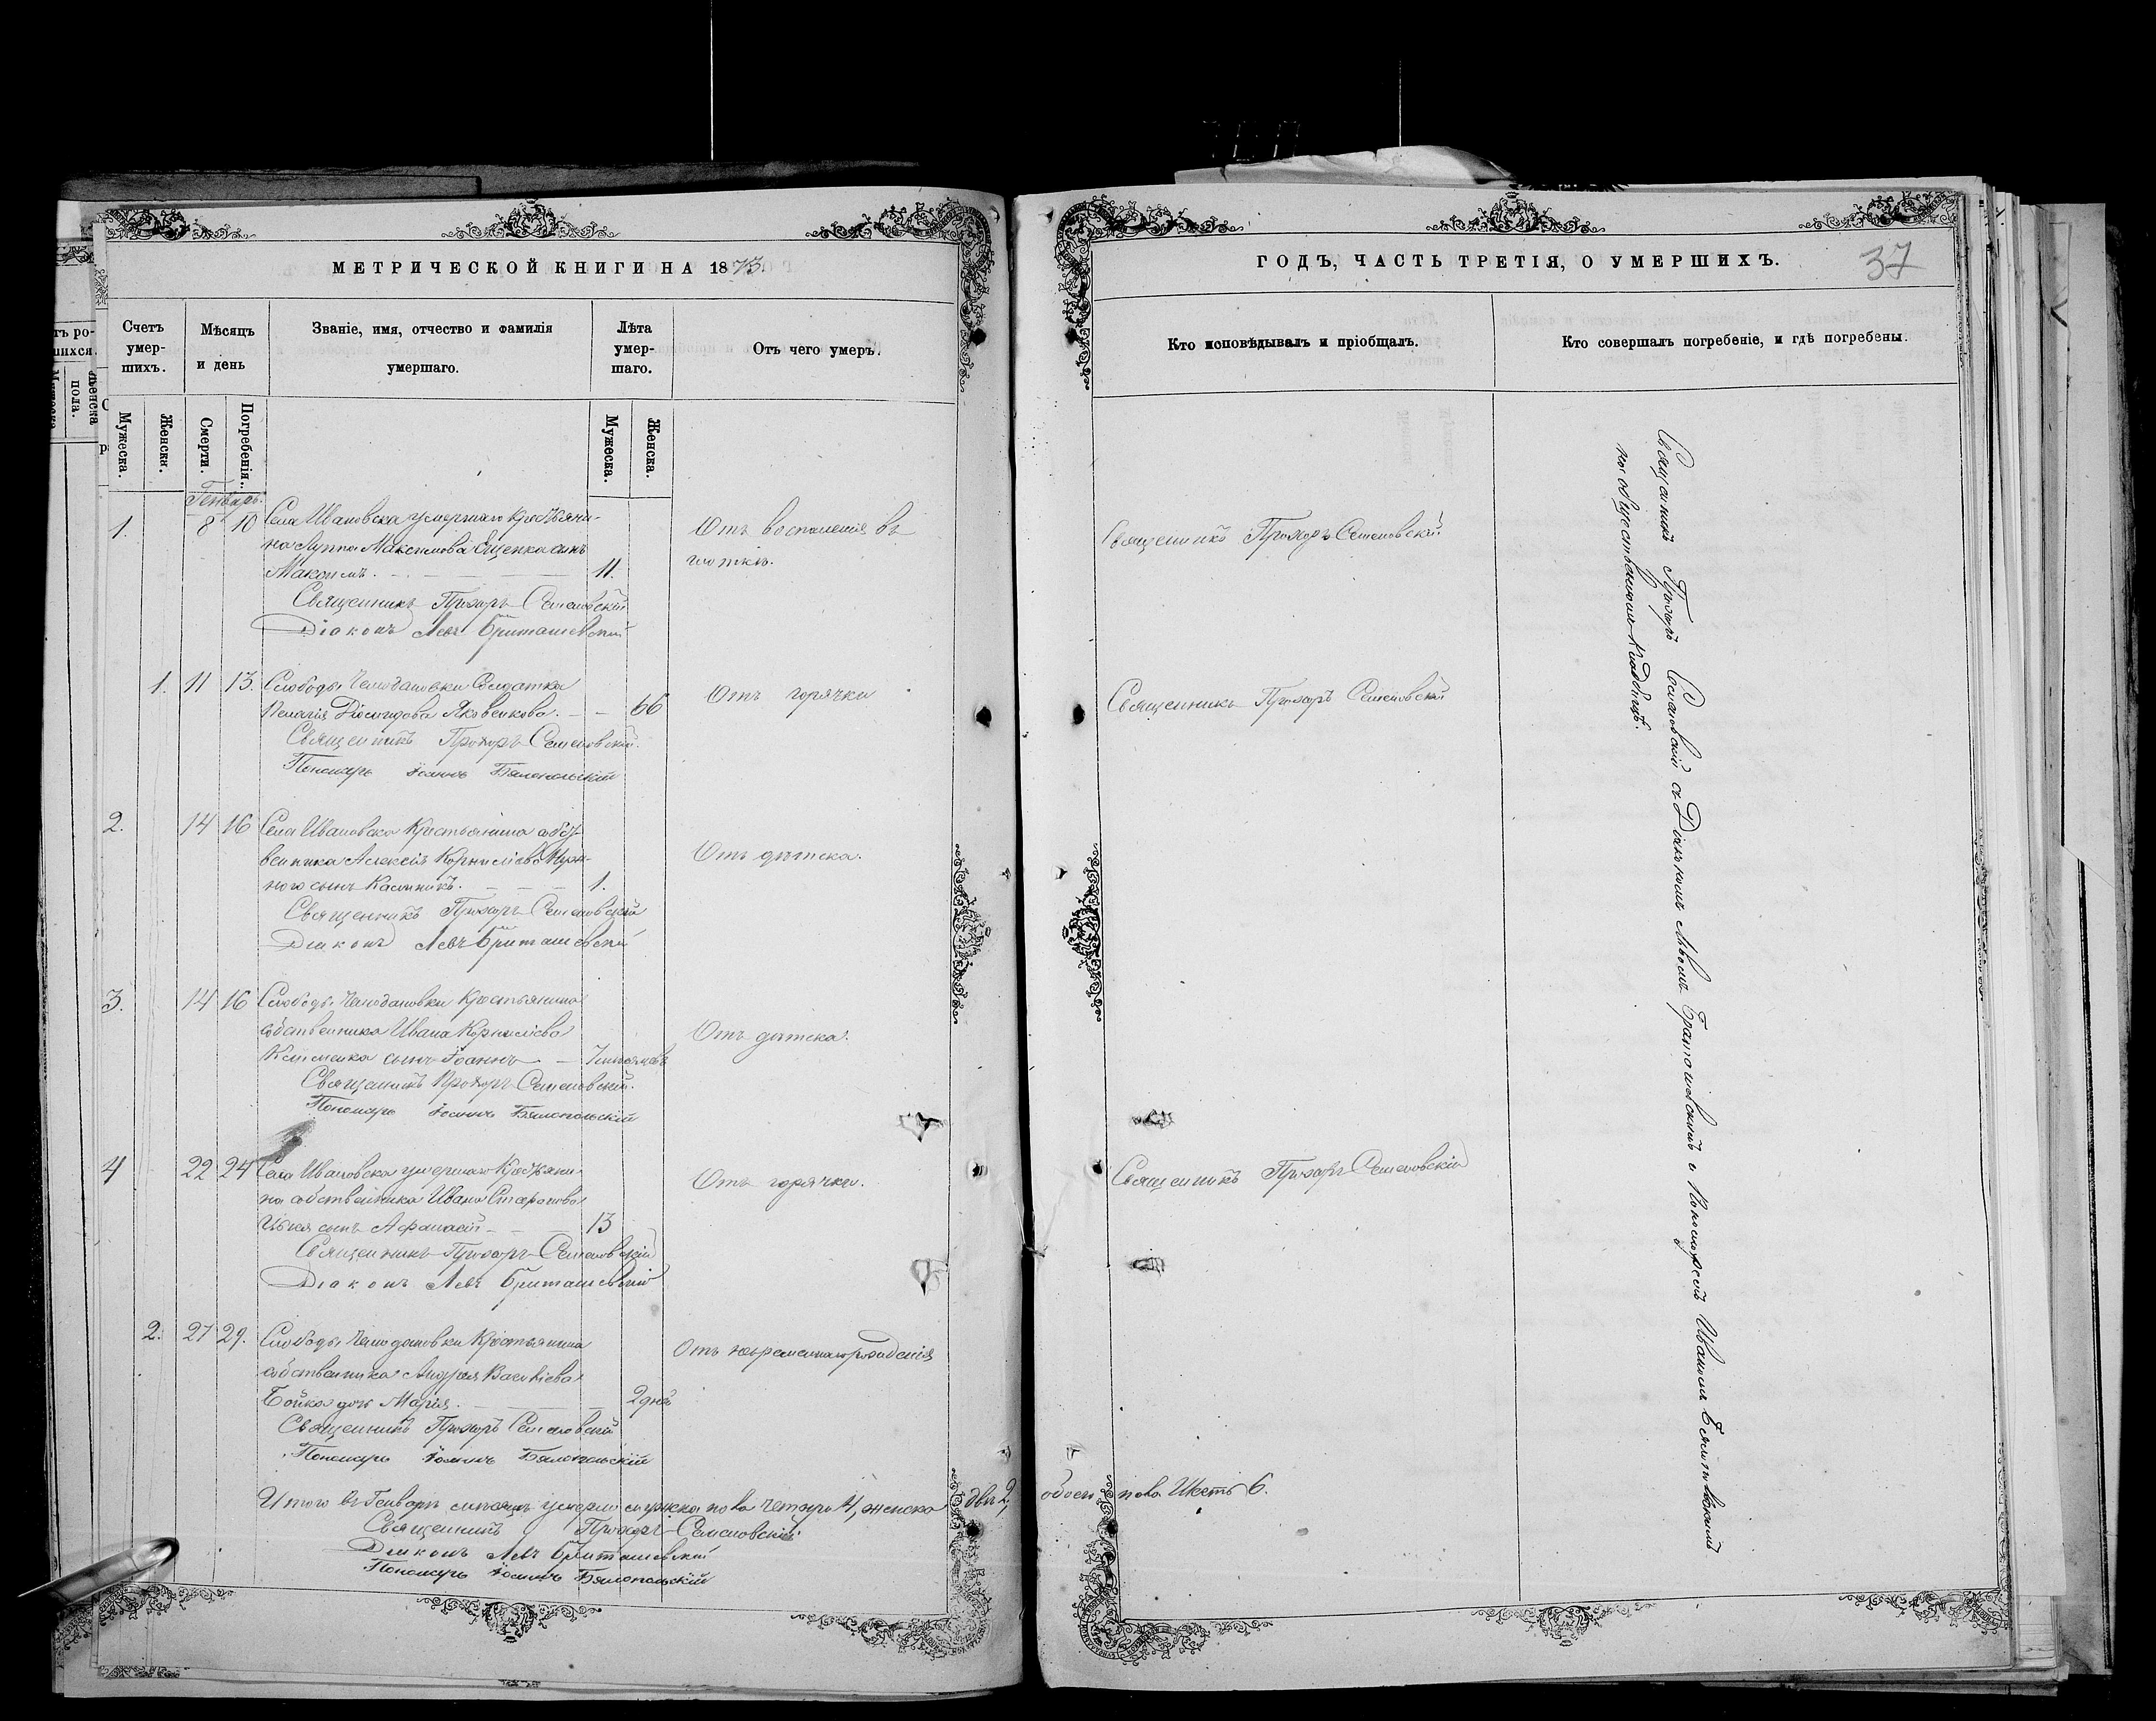 МЕТРИЧЕСКОЙ КНИГИ НА 1873.
Счетъ умер-шихъ.
Мѣсяцъ и день
Званіе, имя, отчество и фамилія умершаго.
Лѣта умер-шаго.
Отъ чего умеръ.
Мужеска.
Женска.
Смерти.
Погребенія.
Мужеска.
Женска.
Генварь.
1. 8 10 Села Ивановска умершаго Крестьяни-
на Луппа Максимова Ещенка сынъ
Максимъ. 11. Отъ воспаленія въ
глоткѣ.
Священникъ Прохоръ Семеновскій
Діаконъ Левъ Бриташевскій
1. 11 13. Слободы Чемодановки Солдатка
Пелагія Діомидова Яковенкова. 66 Отъ горячки
Священникъ Прохоръ Семеновскій.
Пономарь Іоаннъ Бялопольскій
2. 14 16 Села Ивановска Крестьянина собст-
венника Алексія Корнилієва
ного сынъ Калинникъ. 1. Отъ дѣтска.
Священникъ Прохоръ Семеновскій
Діаконъ Левъ Бриташевскій
3. 14 16 Слободы Чемодановки Крестьянина
собственника Ивана Корнилієва
Клименка сынъ Іоаннъ 7 мѣсяцевъ Отъ дѣтска.
Священникъ Прохоръ Семеновскій.
Пономарь Іоаннъ Бялопольскій
4 22 24 Села Ивановска умершаго Крестьяни-
на собственника Ивана Стефанова
сынъ Афанасій 13 Отъ горячки.
Священникъ Прохоръ Семеновскій
Діаконъ Левъ Бриташевскій
2. 27 29. Слободы Чемодановки Крестьянина
собственника Андрея Василієва
Бойка дочь Марія. 2 дней Отъ
Священникъ Прохоръ Семеновскій
Пономарь Іоаннъ Бялопольскій
Итого въ Генварѣ мѣсяцѣ умерло мужеска пола четыре 4, женска двѣ 2, обоего пола Шесть 6.
Священникъ Прохоръ Семеновскій
Діаконъ Левъ Бриташевскій
Пономарь Іоаннъ Бялопольскій
ГОДЪ, ЧАСТЬ ТРЕТІЯ, О УМЕРШИХЪ.
37
Кто исповѣдывалъ и пріобщалъ.
Кто совершалъ погребеніе, и гдѣ погребены.
Священникъ Прохоръ Семеновскій
Священникъ Прохоръ Семеновскій
Священникъ Прохоръ Семеновскій
Священникъ Прохоръ Семеновскій съ Діакономъ Львомъ Бриташевскимъ и Пономаремъ Иваномъ Бялопольскимъ
на общественномъ Кладбищѣ.